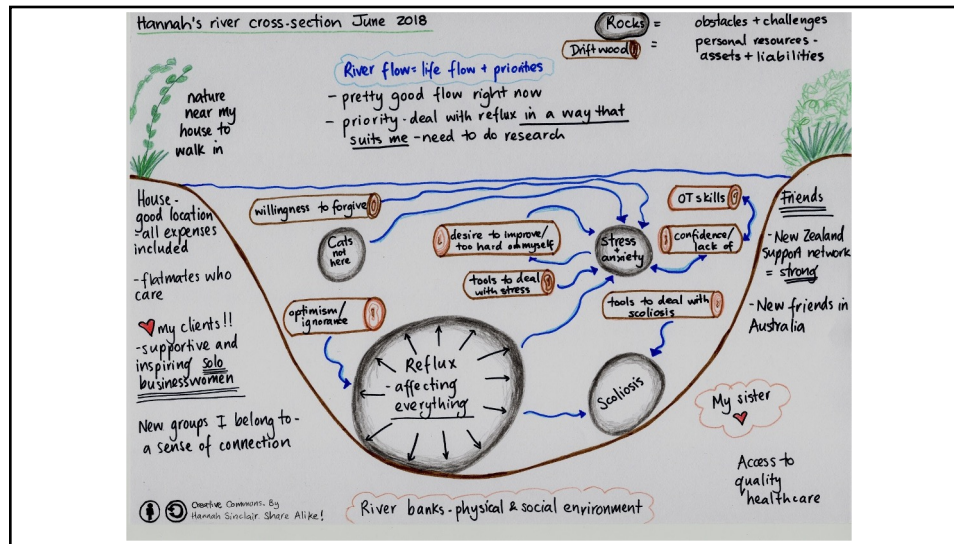 Hannah's river cross-section June 2018
Rocks = obstacles + challenges
Driftwood = personal resources -
assets + liabilities
River flow = life flow + priorities
- pretty good flow right now
- priority - deal with reflux in a way that
suits me - need to do research
nature
near my
house to
walk in
House -
good location
all expenses
included
- flatmates who
care
my clients!!
- supportive and
inspiring solo
businesswomen
New groups I belong to -
a sense of connection
willingness to forgive
Cats
not
here
optimism/
ignorance
desire to improve/
too hard on myself
tools to deal
with stress
Stress
+
anxiety
OT skills
confidence/
lack of
tools to deal with
scoliosis
Reflux
- affecting
everything
Scoliosis
Friends
- New Zealand
Support network
= strong
- New friends in
Australia
My sister
Access to
quality
healthcare
River banks - physical & social environment
Creative Commons. By
Hannah Sinclair. Share Alike!